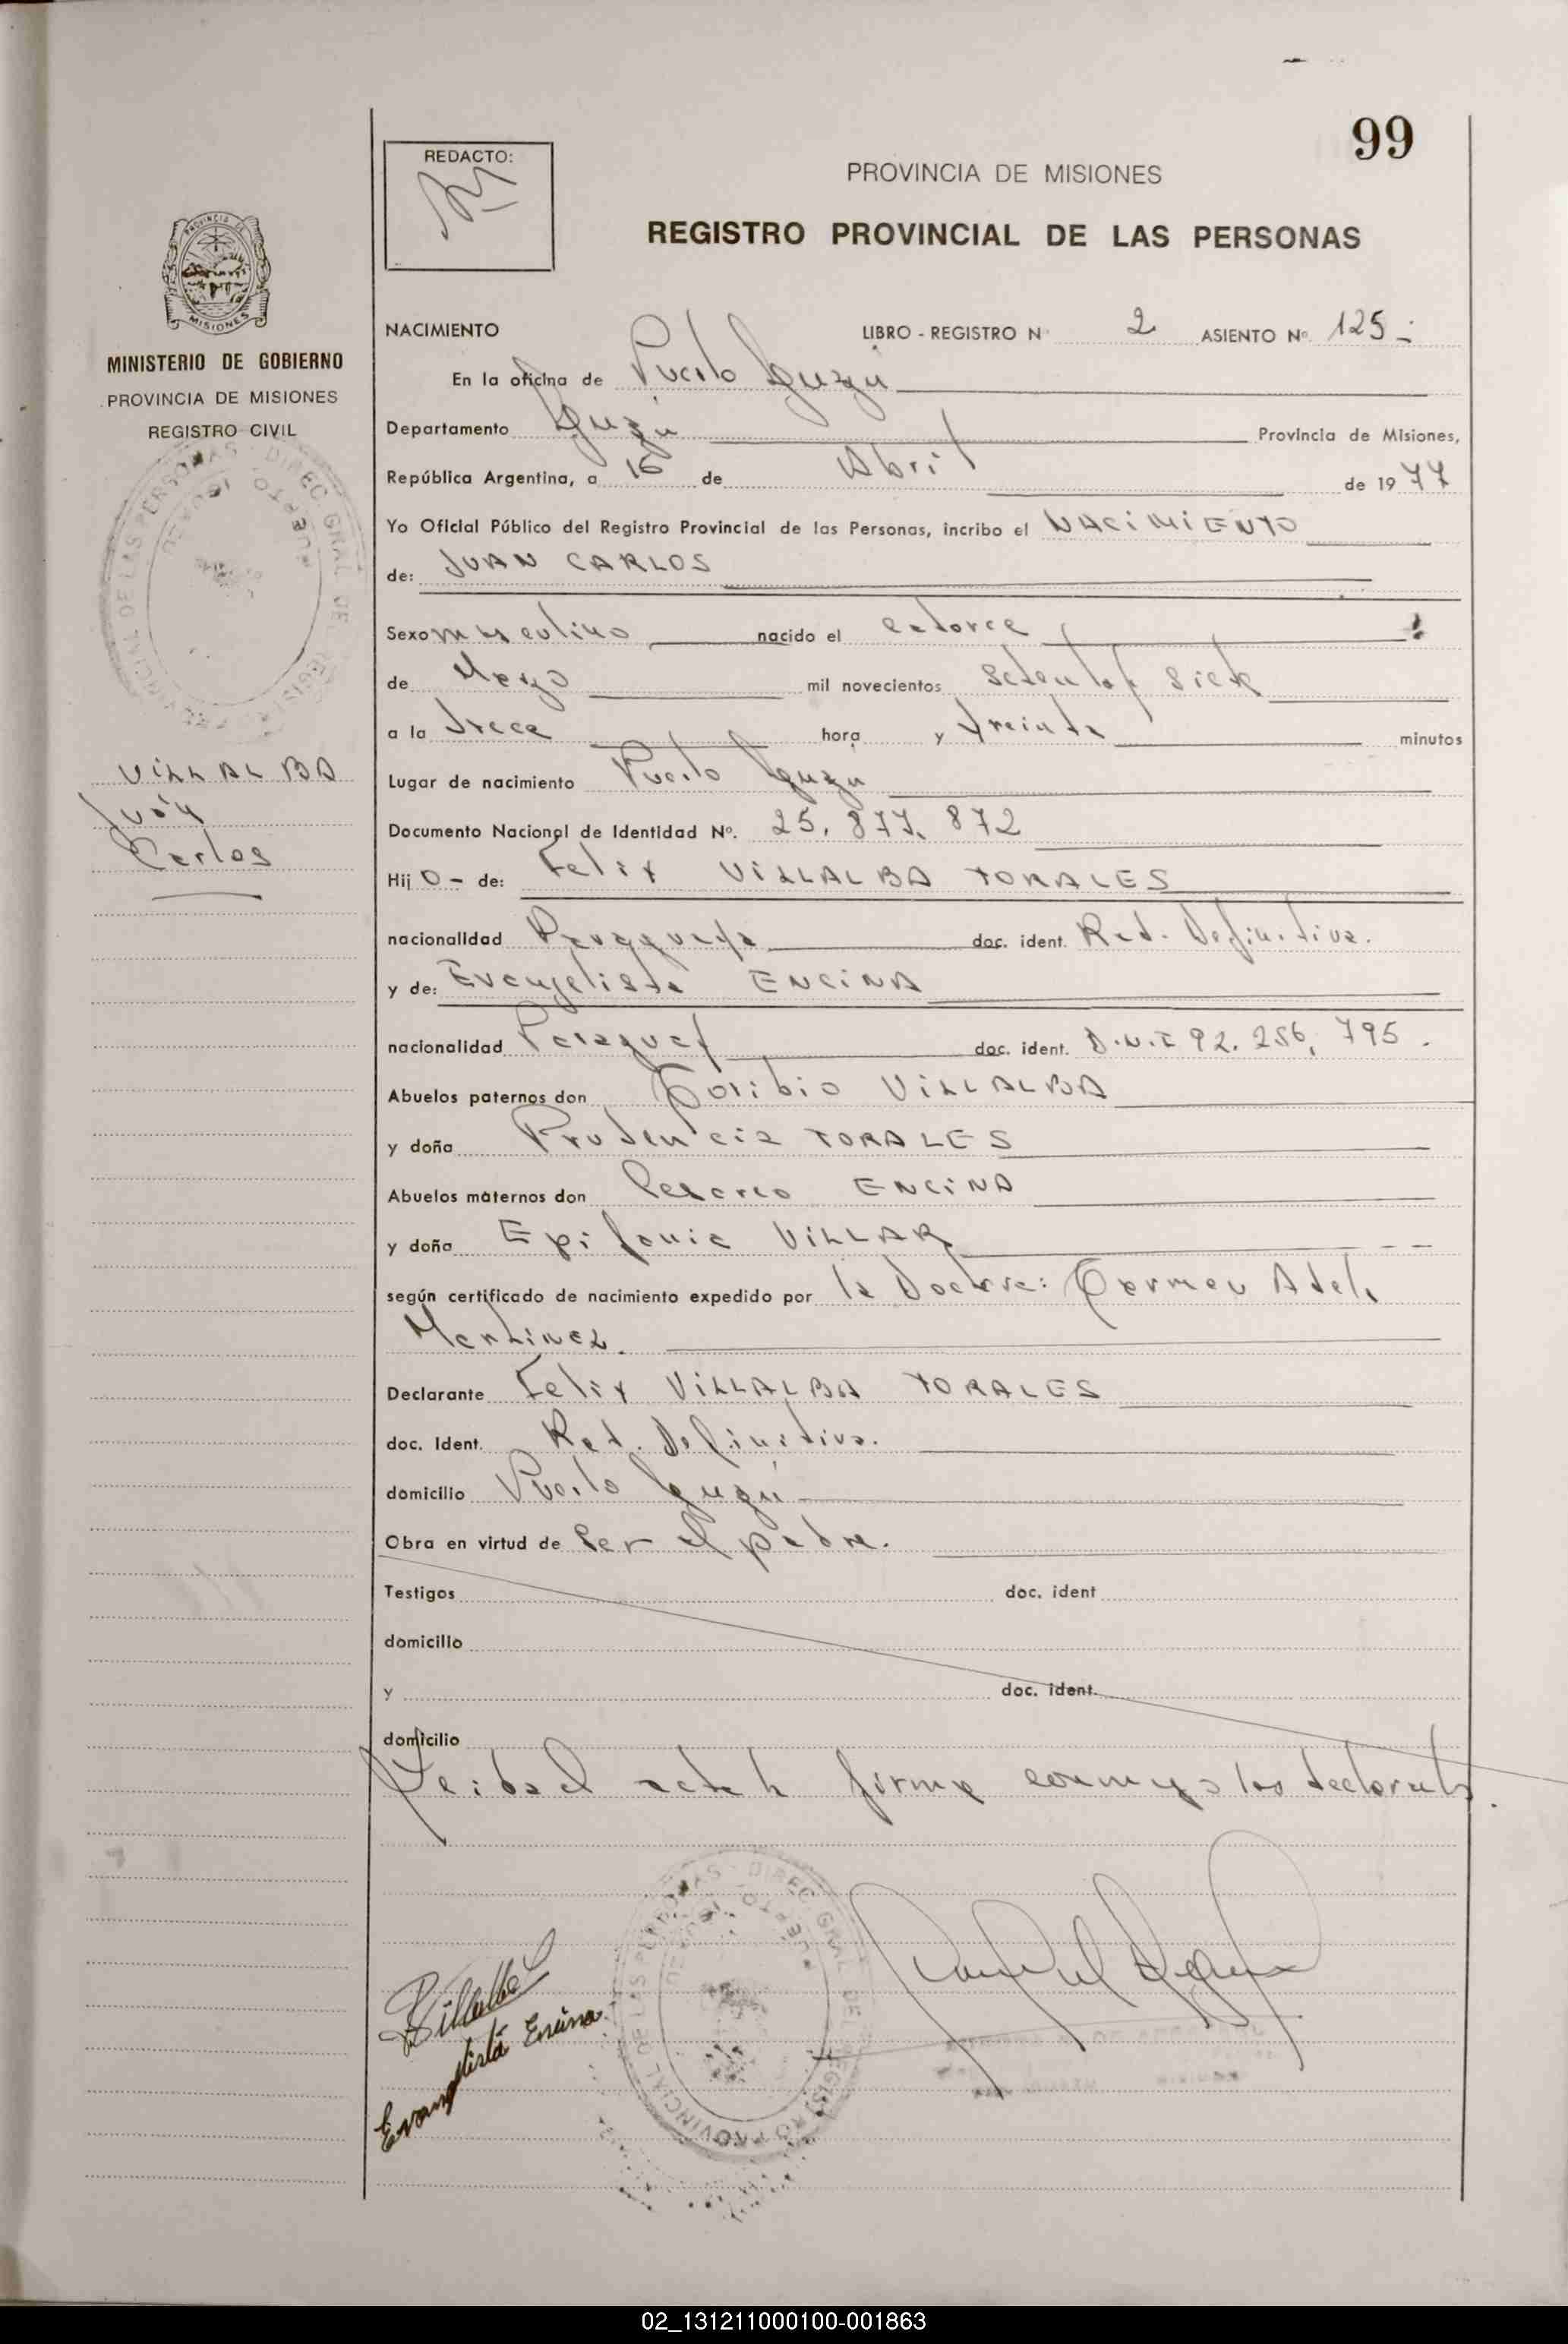 99
REDACTO:
PROVINCIA DE MISIONES
REGISTRO PROVINCIAL DE LAS PERSONAS
PROVINCIA DE
MISIONES
MINISTERIO DE GOBIERNO
PROVINCIA DE MISIONES
REGISTRO CIVIL
VILLALBA
Juan
Carlos
NACIMIENTO LIBRO - REGISTRO Nº 2 ASIENTO Nº 125 -
En la oficina de Puerto Iguazú
Departamento Iguazú Provincia de Misiones,
República Argentina, a 16 de Abril de 1977
Yo Oficial Público del Registro Provincial de las Personas, incribo el NACIMIENTO
de: JUAN CARLOS
Sexo masculino nacido el catorce
de Marzo mil novecientos setenta y siete
a la trece hora y treinta minutos
Lugar de nacimiento Puerto Iguazú
Documento Nacional de Identidad Nº. 25.877.872
Hijo - de: Felix VILLALBA TORALES
nacionalidad Paraguaya doc. ident. Rad. Definitiva.
y de: Evangelista ENCINA
nacionalidad doc. ident. D.N.I 92.256.795.
Abuelos paternos don Toribio VILLALBA
y doña Prudencia TORALES
Abuelos maternos don ENCINA
y doña Epifania VILLAR
según certificado de nacimiento expedido por la Doctora: Carmen Adela
Martinez.
Declarante Felix VILLALBA TORALES
doc. Ident. Rad. Definitiva.
domicilio Puerto Iguazú
Obra en virtud de ser el padre.
Testigos doc. ident
domicilio
y doc. ident.
domicilio
Leida el acta la firma conmigo los declarantes.
Villalba
Evangelista Encina
DIREC. GRAL. DEL REGISTRO PROVINCIAL DE LAS PERSONAS
02_131211000100-001863